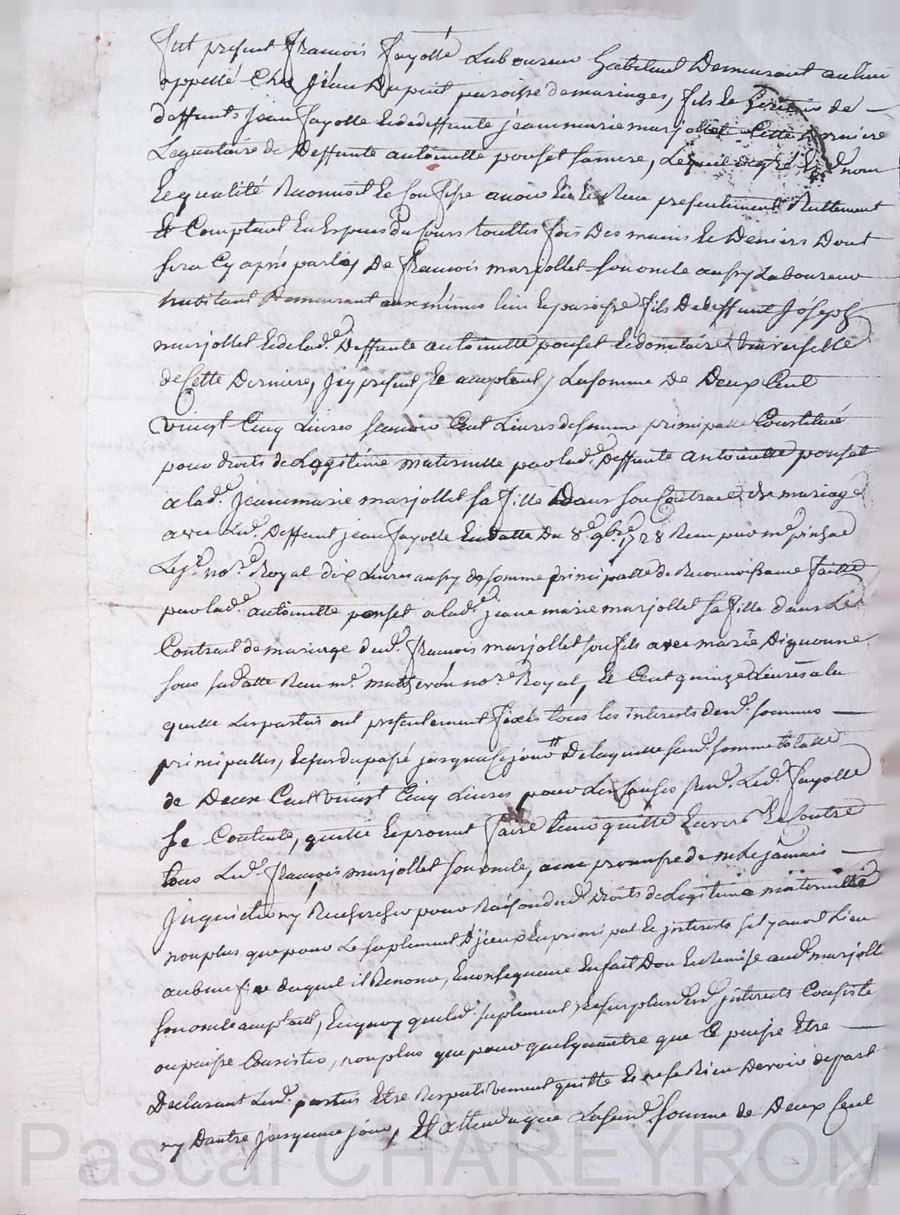 fut present francois fayolle Laboureur habitant Demeurant au lieu
appellé Chez jean Dupint paroisse de maringes, fils et heritier de
deffunts jean fayolle et de deffunte jeanne marie marjollet cette derniere
Legataire de Deffunte antoinette ponset sa mere, Lequel de gré esd. nom
et qualité Reconnoit et Confesse avoir Eu et Receu presentement Reellement
Et Comptant En Espèces du Cours touttes fois Des mains et Deniers Dont
sera Cy après parlé, De francois marjollet son oncle aussy Laboureur
habitant Demeurant aux mêmes lieu et paroisse fils De deffunt Joseph
marjollet et de lad.e Deffunte antoinette ponset et donataire universelle
de Cette Derniere, jcy present et acceptant, La somme De Deux Cent
vingt Cinq Livres scavoir Cent Livres de somme principalle Constituée
pour droits de Legitime maternelle par lad.e Deffunte antoinette ponset
a lad.e jeanne marie marjollet sa fille Dans son Contract De mariage
avec Led. Deffunt jean fayolle En datte Du 8.e 9bre 1728 Receu par m.e pinhac
Lejs. no.re Royal dix Livres aussy de somme principalle de Reconnoissance faitte
par lad.e antoinette ponset a lad.e jeanne marie marjollet sa fille dans Le
Contract de mariage dud. francois marjollet son fils avec marie Diguonne
sous sa datte Receu m.e no.re Royal, Et Cent quinze Livres a la
quelle Les parties ont presentement fixés tous les interests desd. sommes
principalles, Echus du passé jusqua ce jour De laquelle susd. somme totalle
de Deux Cent vingt Cinq Livres pour Les Causes susd. Led. fayolle
se Contente, quitte et promet faire tenir quitte Envers Et Contre
tous Led. francois marjollet son oncle, avec promesse de ne Le jamais
Inquietter ny Rechercher pour Raison desd. Droits de Legitime maternelle
non plus que pour Le suplement D'jceux En principal et jnterests s'il y avoit Lieu
au benefice duquel il Renonce, En consequence En fait Don Et Remise aud. marjollet
son oncle acceptant, En quoy que led. suplement, Et surplus desd. jnterests Consiste
ou puisse Consister, non plus que pour quelqu'autre que Ce puisse Etre
Declarant Lesd. parties Etre Respectivement quitte Et ne se Rien Devoir de part
ny D'autre jusqua ce jour, Et attendu que La susd. somme de Deux Cent
Pascal CHAREYRON